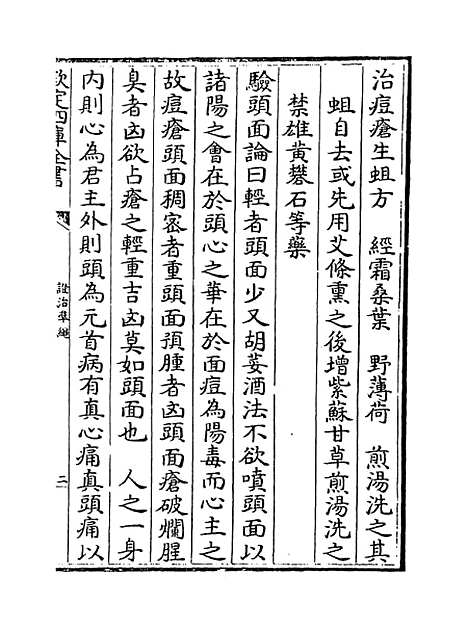 治痘瘡生蛆方　經霜桑葉　野薄荷　煎湯洗之其
蛆自去或先用艾條熏之後增紫蘇甘草煎湯洗之
禁雄黄礬石等藥
驗頭面論曰輕者頭面少又胡荽酒法不欲噴頭面以
諸陽之會在於頭心之華在於面痘為陽毒而心主之
故痘瘡頭面稠宻者重頭面預腫者凶頭面瘡破爛腥
臭者凶欲占瘡之輕重吉凶莫如頭面也　人之一身
内則心為君主外則頭為元首病有真心痛真頭痛以
欽定四庫全書
證治凖繩
二